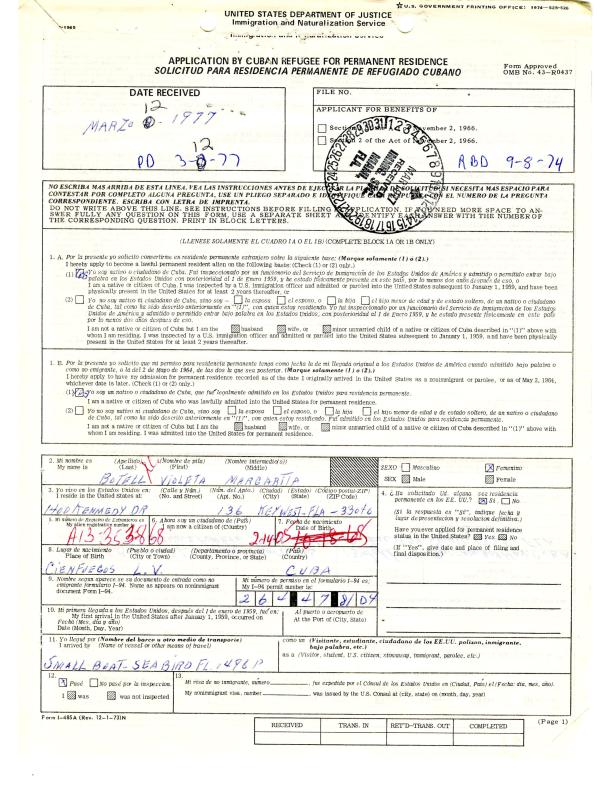 ☆U.S. GOVERNMENT PRINTING OFFICE: 1974-528-526
UNITED STATES DEPARTMENT OF JUSTICE
Immigration and Naturalization Service
APPLICATION BY CUBAN REFUGEE FOR PERMANENT RESIDENCE
SOLICITUD PARA RESIDENCIA PERMANENTE DE REFUGIADO CUBANO
Form Approved
OMB No. 43-R0437
DATE RECEIVED
12
MARZO 1977
12
PD 3-77
FILE NO.
APPLICANT FOR BENEFITS OF
November 2, 1966.
2 of the Act of November 2, 1966.
RBD 9-8-74
NO ESCRIBA MAS ARRIBA DE ESTA LINEA. VEA LAS INSTRUCCIONES ANTES DE SOLICITUD. SI NECESITA MAS ESPACIO PARA
CONTESTAR POR COMPLETO ALGUNA PREGUNTA, USE UN PLIEGO SEPARADO E CON EL NUMERO DE LA PREGUNTA
CORRESPONDIENTE. ESCRIBA CON LETRA DE IMPRENTA.
DO NOT WRITE ABOVE THIS LINE. SEE INSTRUCTIONS BEFORE FILLING APPLICATION. IF YOU NEED MORE SPACE TO AN-
SWER FULLY ANY QUESTION ON THIS FORM, USE A SEPARATE SHEET IDENTIFY EACH ANSWER WITH THE NUMBER OF
THE CORRESPONDING QUESTION. PRINT IN BLOCK LETTERS.
(LLENESE SOLAMENTE EL CUADRO 1A O EL 1B) (COMPLETE BLOCK 1A OR 1B ONLY)
1. A. Por la presente yo solicito convertirme en residente permanente extranjero sobre la siguiente base: (Marque solamente (1) o (2).)
I hereby apply to become a lawful permanent resident alien on the following basis: (Check (1) or (2) only.)
(1) Yo soy nativo o ciudadano de Cuba. Fui inspeccionado por un funcionario del Servicio de Inmigración de los Estados Unidos de América y admitido o permitido entrar bajo
palabra en los Estados Unidos con posterioridad al 1 de Enero 1959, y he estado físicamente presente en este país, por lo menos dos años después de eso, o
I am a native or citizen of Cuba. I was inspected by a U.S. immigration officer and admitted or paroled into the United States subsequent to January 1, 1959, and have been
physically present in the United States for at least 2 years thereafter, or
(2) Yo no soy nativo ni ciudadano de Cuba, sino soy - la esposa el esposo, o la hija el hijo menor de edad y de estado soltero, de un nativo o ciudadano
de Cuba, tal como ha sido descrito anteriormente en "(1)", con quien estoy residiendo. Yo he inspeccionado por un funcionario del Servicio de Inmigración de los Estados
Unidos de América y admitido o permitido entrar bajo palabra en los Estados Unidos, con posterioridad al 1 de Enero, 1959, y he estado presente físicamente en este país
por lo menos dos años después de eso.
I am not a native or citizen of Cuba but I am the husband wife, or minor unmarried child of a native or citizen of Cuba described in "(1)" above with
whom I am residing. I was inspected by a U.S. immigration officer and admitted or paroled into the United States subsequent to January 1, 1959, and have been physically
present in the United States for at least 2 years thereafter.
1. B. Por la presente yo solicito que mi permiso para residencia permanente tenga como fecha la de mi llegada original a los Estados Unidos de América cuando admitido bajo palabra o
como no emigrante, o la del 2 de Mayo de 1964, de las dos la que sea posterior. (Marque solamente (1) o (2).)
I hereby apply to have my admission for permanent residence recorded as of the date I originally arrived in the United States as a nonimmigrant or parolee, or as of May 2, 1964,
whichever date is later. (Check (1) or (2) only.)
(1) Yo soy un nativo o ciudadano de Cuba, que fui legalmente admitido en los Estados Unidos para residencia permanente.
I am a native or citizen of Cuba who was lawfully admitted into the United States for permanent residence.
(2) Yo no soy nativo ni ciudadano de Cuba, sino soy la esposa el esposo, o la hija el hijo menor de edad y de estado soltero, de un nativo o ciudadano
de Cuba, tal como ha sido descrito anteriormente en "(1)", con quien estoy residiendo. Fui admitido en los Estados Unidos para residencia permanente.
I am not a native or citizen of Cuba but I am the husband wife, or minor unmarried child of a native or citizen of Cuba described in "(1)" above with
whom I am residing. I was admitted into the United States for permanent residence.
2. Mi nombre es (Apellido) (Nombre de pila) (Nombre intermedio(s))
My name is (Last) (First) (Middle)
BOTELL VIOLETA MARGARITA
SEXO Masculino X Femenino
SEX Male Female
3. Yo vivo en los Estados Unidos en: (Calle y Núm.) (Núm. del Apto.) (Ciudad) (Estado) (Código postal-ZIP)
I reside in the United States at: (No. and Street) (Apt. No.) (City) (State) (ZIP Code)
KENNEDY DR 136 KEY WEST-FLA-33040
4. ¿Ha solicitado Ud. alguna vez residencia permanente en los EE. UU.? X Sí No
(Si la respuesta es "Sí", indique fecha y
lugar de presentación y resolución definitiva.)
Have you ever applied for permanent residence
status in the United States? Yes No
(If "Yes", give date and place of filing and
final disposition.)
5. Mi número de Registro de Extranjeros es
My alien registration number is
A13-353868
6. Ahora soy un ciudadano de (País)
I am now a citizen of (Country)
7. Fecha de nacimiento
Date of Birth
2-14-05
8. Lugar de nacimiento (Pueblo o ciudad) (Departamento o provincia) (País)
Place of Birth (City or Town) (County, Province, or State) (Country)
CIENFUEGOS L.V. CUBA
9. Nombre según aparece en su documento de entrada como no
emigrante formulario I-94. Name as appears on nonimmigrant
document Form I-94.
Mi número de permiso en el formulario I-94 es:
My I-94 permit number is:
10. Mi primera llegada a los Estados Unidos, después del 1 de enero de 1959, fué en:
My first arrival in the United States after January 1, 1959, occurred on
Fecha (Mes, día y año)
Date (Month, Day, Year)
Al puerto o aeropuerto de
At the Port of (City, State)
11. Yo llegué por (Nombre del barco u otro medio de transporte)
I arrived by (Name of vessel or other means of travel)
SMALL BOAT-SEA BIRD FL. 1496 P
como un (Visitante, estudiante, ciudadano de los EE.UU. polizon, inmigrante,
bajo palabra, etc.)
as a (Visitor, student, U.S. citizen, stowaway, immigrant, parolee, etc.)
12. X Pasé No pasé por la inspección.
I was was not inspected
13. Mi visa de no inmigrante, número, fue expedida por el Cónsul de los Estados Unidos en (Ciudad, País) el (Fecha: día, mes, año).
My nonimmigrant visa, number was issued by the U.S. Consul at (city, state) on (month, day, year)
Form I-485A (Rev. 12-1-73)N
(Page 1)
RECEIVED TRANS. IN RET'D-TRANS. OUT COMPLETED